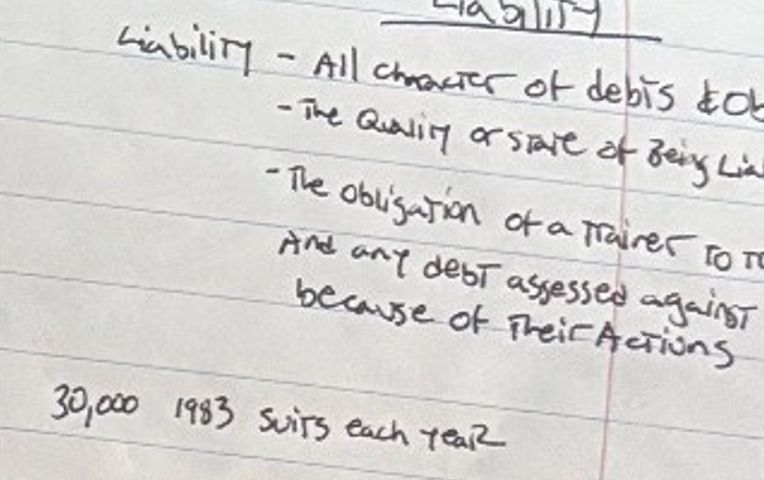 Liability
Liability - All character of debts & Ob
- The Quality or state of Being Lia
- The obligation of a Trainer To
And any debt assessed against
because of Their Actions
30,000 1983 suits each year